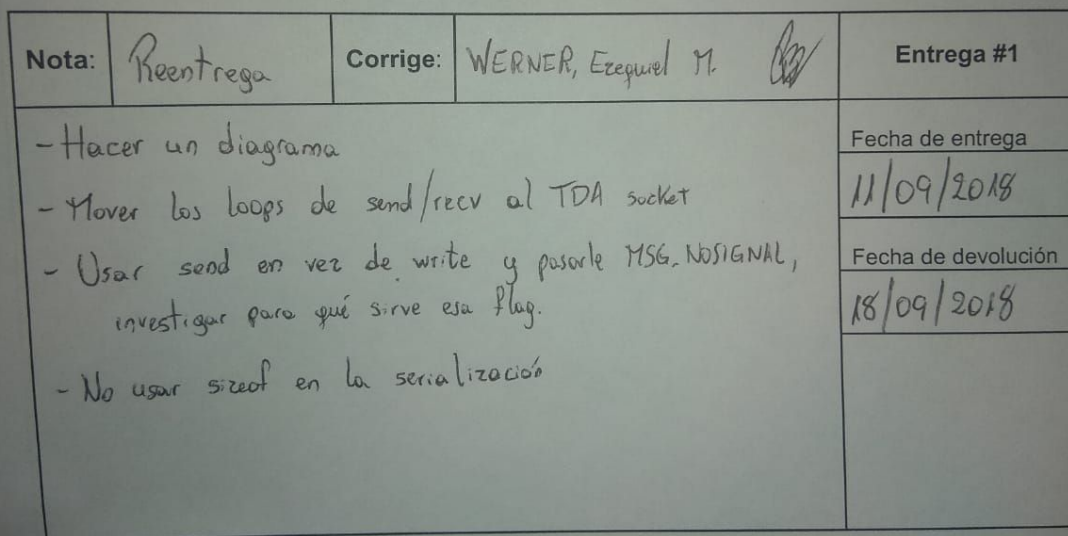 Nota: Reentrega Corrige: WERNER, Ezequiel M. Entrega #1
- Hacer un diagrama
- Mover los loops de send/recv al TDA socket
- Usar send en vez de write y pasarle MSG_NOSIGNAL,
investigar para qué sirve esa flag.
- No usar sizeof en la serialización
Fecha de entrega
11/09/2018
Fecha de devolución
18/09/2018